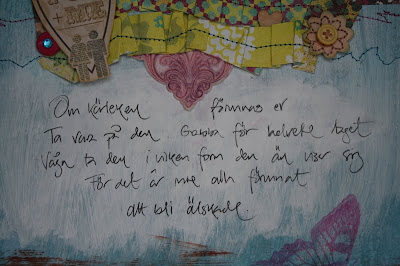 Om kärleken förunnas er
Ta vara på den. Grabba för helvete taget
Våga ta den i vilken form den än visar sig
För det är inte alla förunnat
att bli älskade.